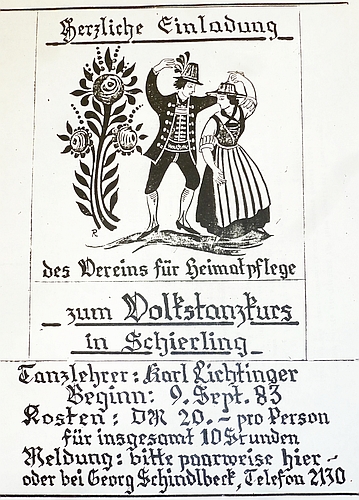 Herzliche Einladung
R
des Vereins für Heimatpflege
zum Volkstanzkurs
in Schierling
Tanzlehrer: Karl Lichtinger
Beginn: 9. Sept. 83
Kosten: DM 20.- pro Person
für insgesamt 10 Stunden
Meldung: bitte paarweise hier -
oder bei Georg Schindlbeck, Telefon 2130